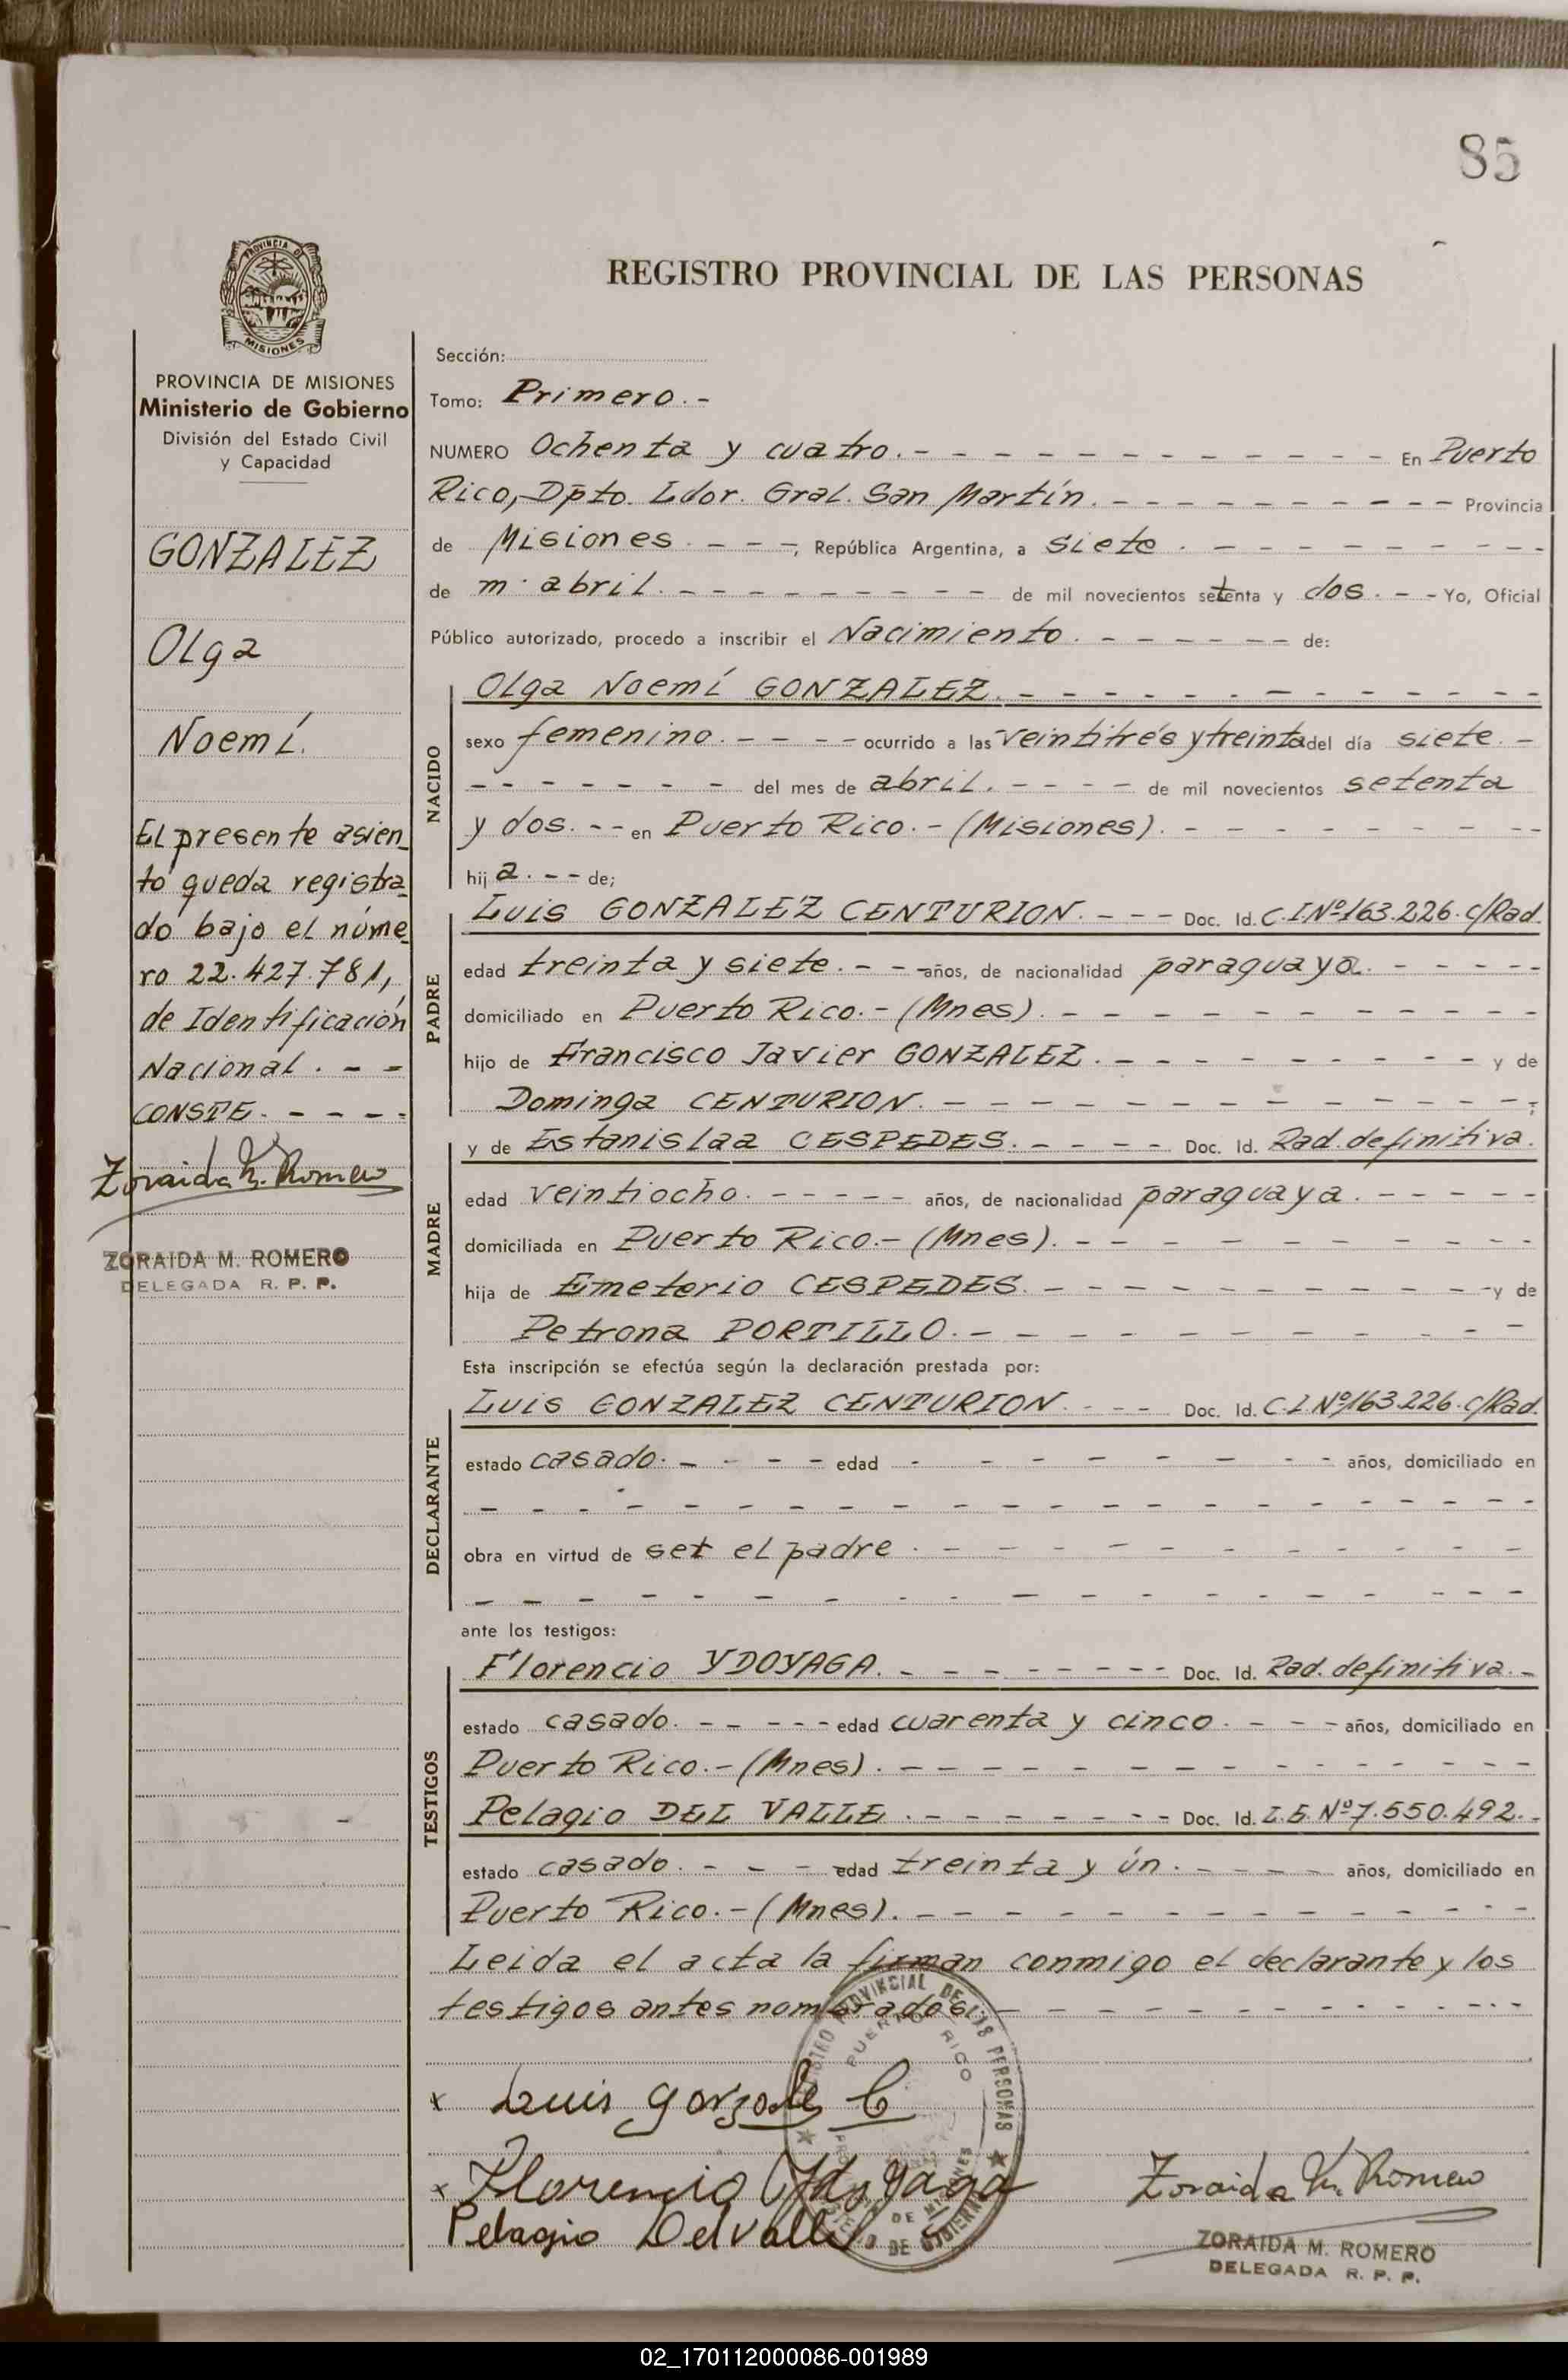 85
PROVINCIA DE
MISIONES
REGISTRO PROVINCIAL DE LAS PERSONAS
PROVINCIA DE MISIONES
Ministerio de Gobierno
División del Estado Civil
y Capacidad
GONZALEZ
Olga
Noemí.
El presente asien_
to queda registra_
do bajo el núme_
ro 22.427.781,
de Identificación
Nacional. - -
CONSTE. - - - -
Zoraida M. Romero
ZORAIDA M. ROMERO
DELEGADA R. P. P.
Sección:
Tomo: Primero. -
NUMERO Ochenta y cuatro. - - - - - - - - - - - En Puerto
Rico, Dpto. Ldor. Gral. San Martín. - - - - - - - - - Provincia
de Misiones. - - -, República Argentina, a siete. - - - - - - - -
de m. abril. - - - - - - - - de mil novecientos setenta y dos. - - Yo, Oficial
Público autorizado, procedo a inscribir el Nacimiento. - - - - - - - de:
NACIDO
Olga Noemí GONZALEZ. - - - - - - - - - - -
sexo femenino. - - - - ocurrido a las veintitrés y treinta del día siete. -
- - - - - - - del mes de abril. - - - - de mil novecientos setenta
y dos. - - en Puerto Rico. - (Misiones). - - - - - - - -
hij a. - - de;
PADRE
Luis GONZALEZ CENTURION. - - - Doc. Id. C.I.Nº163.226. c/Rad.
edad treinta y siete. - - años, de nacionalidad paraguaya. - - - - -
domiciliado en Puerto Rico. - (Mnes). - - - - - - - - - -
hijo de Francisco Javier GONZALEZ. - - - - - - - - y de
Dominga CENTURION. - - - - - - - - - - - ;
MADRE
y de Estanislaa CESPEDES. - - - - Doc. Id. Rad. definitiva.
edad veintiocho. - - - - - años, de nacionalidad paraguaya. - - - - -
domiciliada en Puerto Rico. - (Mnes). - - - - - - - - - -
hija de Emeterio CESPEDES. - - - - - - - - - - y de
Petrona PORTILLO. - - - - - - - - - - -
Esta inscripción se efectúa según la declaración prestada por:
DECLARANTE
Luis GONZALEZ CENTURION. - - - Doc. Id. C.I.Nº163.226. c/Rad.
estado casado. - - - - - edad - - - - - - - - años, domiciliado en
- - - - - - - - - - - - - - - - - - - -
obra en virtud de ser el padre. - - - - - - - - - - -
- - - - - - - - - - - - - - - - - - -
ante los testigos:
TESTIGOS
Florencio YDOYAGA. - - - - - - - - Doc. Id. Rad. definitiva. -
estado casado. - - - - - edad cuarenta y cinco. - - - años, domiciliado en
Puerto Rico. - (Mnes). - - - - - - - - - - - -
Pelagio DEL VALLE. - - - - - - - Doc. Id. L.E. Nº7.550.492. -
estado casado. - - - - edad treinta y ún. - - - - años, domiciliado en
Puerto Rico. - (Mnes). - - - - - - - - - - - -
Leida el acta la firman conmigo el declarante y los
testigos antes nombrados. - - - - - - - - - - -
REGISTRO PROVINCIAL DE LAS PERSONAS
PUERTO RICO
x Luis Gonzalez C
x Florencio Ydoyaga
Pelagio Del valle
Zoraida M. Romero
ZORAIDA M. ROMERO
DELEGADA R. P. P.
02_170112000086-001989